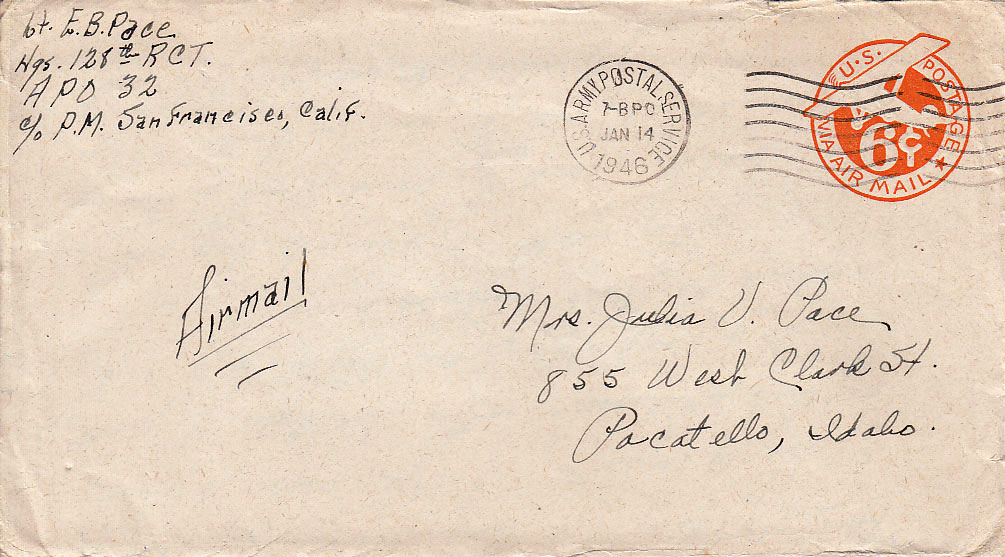 Lt. E.B. Pace
Hqs. 128th RCT.
APO 32
c/o P.M. San Francisco, Calif.
U.S. ARMY POSTAL SERVICE
JAN 14
1946
U.S. POSTAGE
6¢
VIA AIR MAIL
Airmail
Mrs. Julia V. Pace
855 West Clark St.
Pocatello, Idaho.